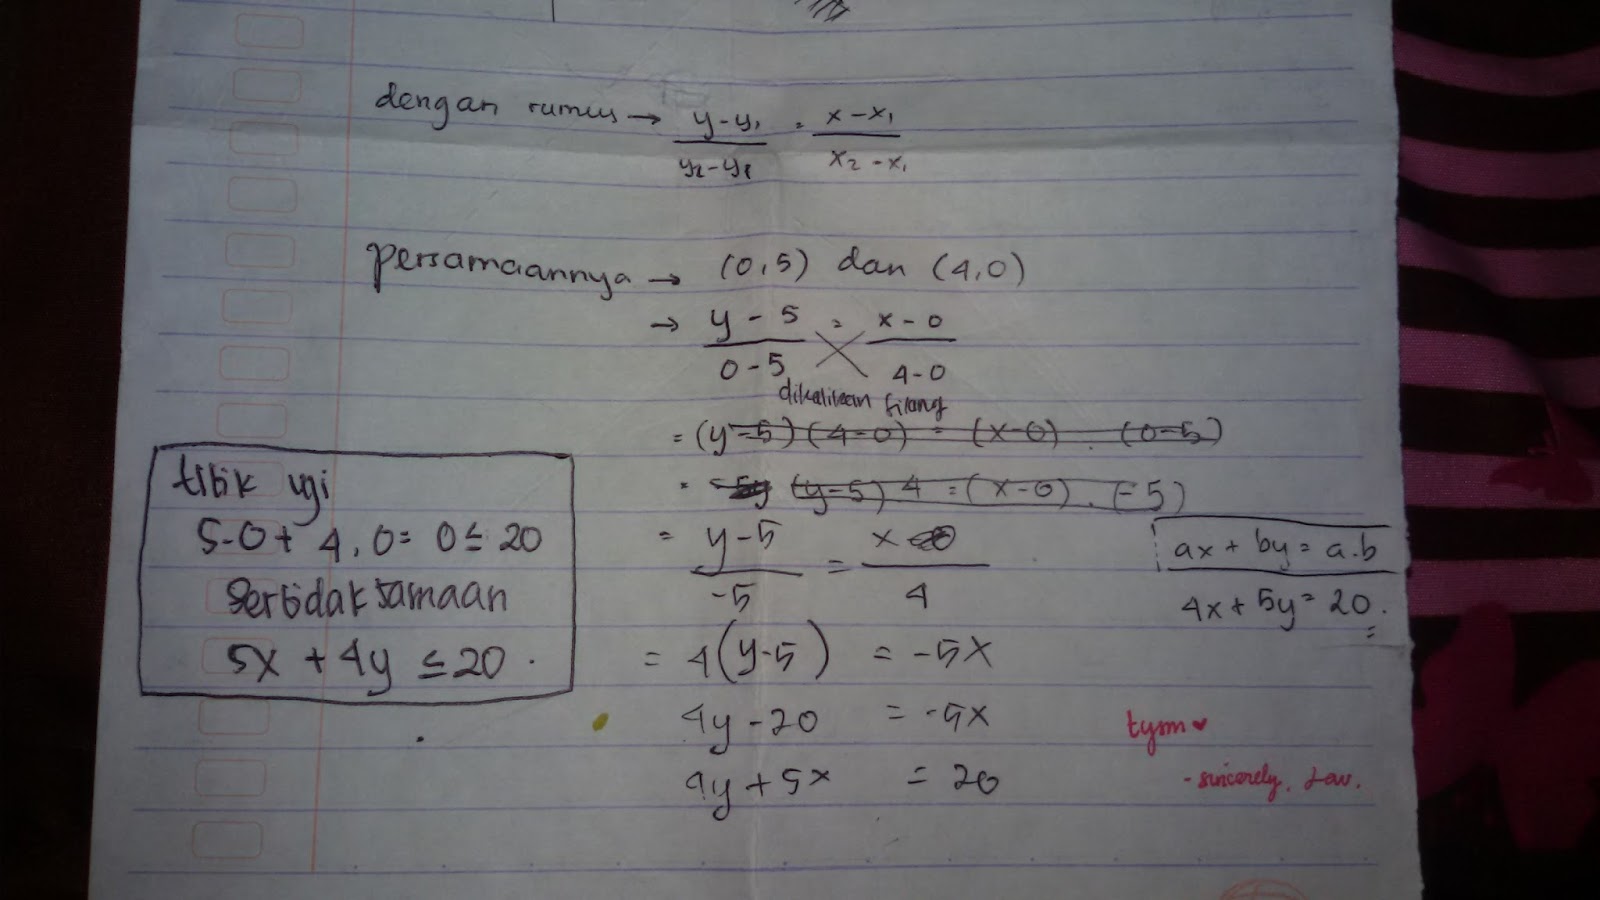 dengan rumus → y-y₁ / y₂-y₁ = x-x₁ / x₂-x₁
persamaannya → (0,5) dan (4,0)
→ y-5 / 0-5 = x-0 / 4-0
dikalikan silang
= (y-5)(4-0) = (x-0) . (0-5)
= (y-5) 4 = (x-0) . (-5)
= y-5 / -5 = x / 4
= 4(y-5) = -5x
4y-20 = -5x
4y+5x = 20
titik uji
5-0+ 4.0= 0≤20
Pertidaksamaan
5x + 4y ≤20.
ax + by = a.b
4x+5y= 20.
tysm ♥
- sincerely, Law.